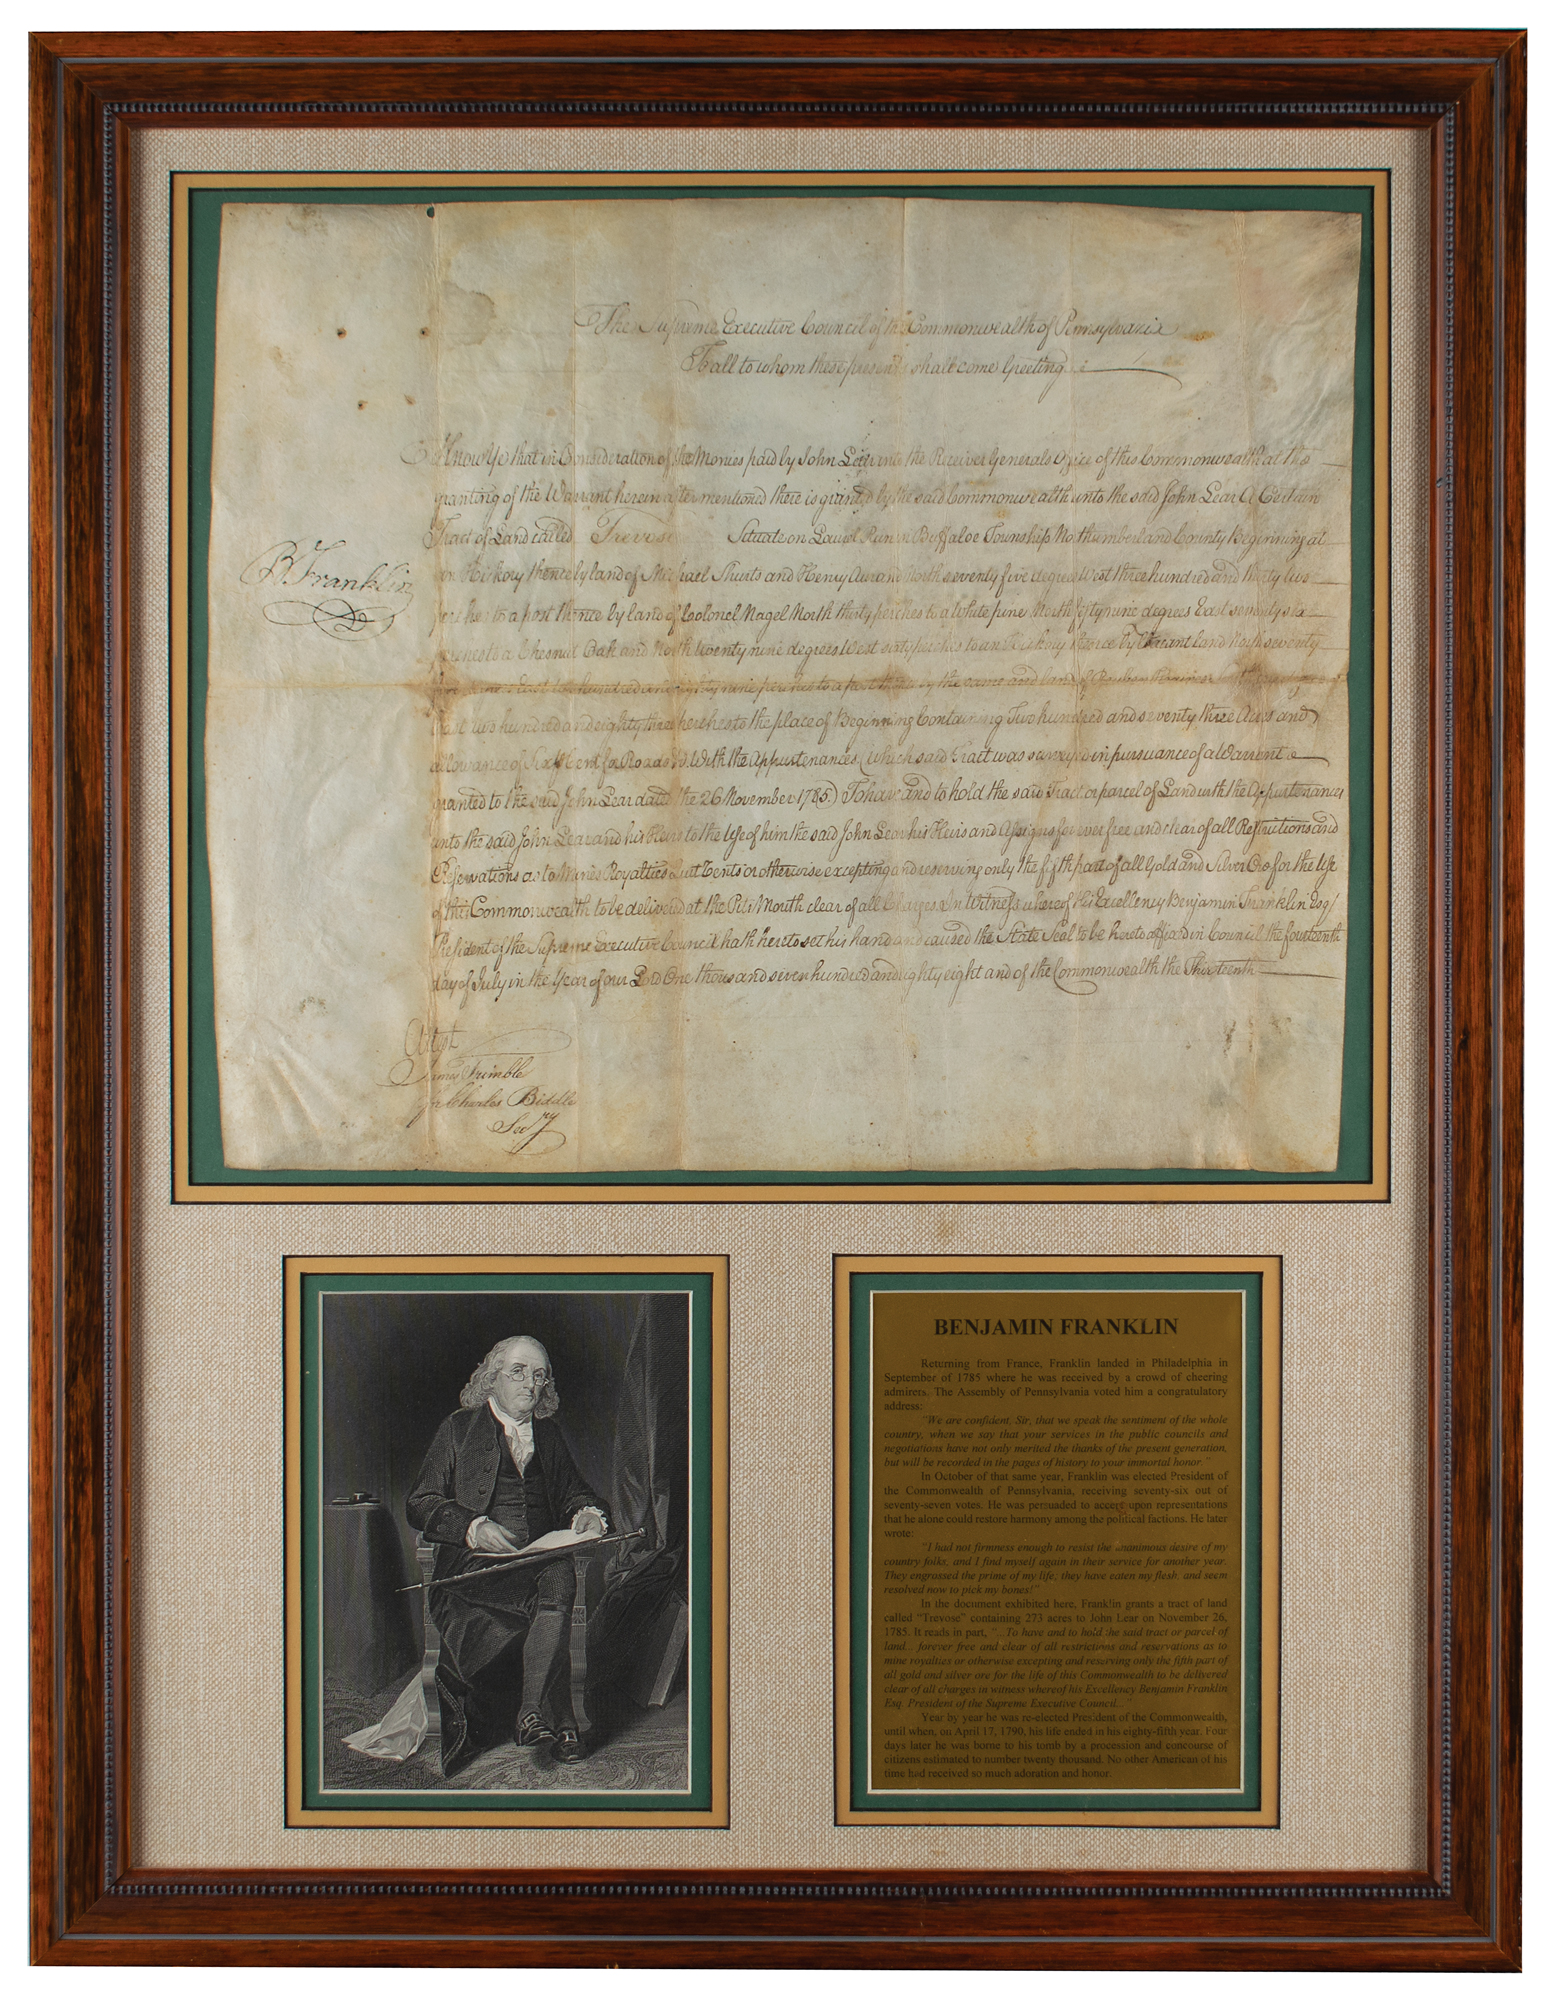 The Supreme Executive Council of the Commonwealth of Pennsylvania
To all to whom these presents shall come Greeting
Know Ye that in Consideration of the Monies paid by John Lear into the Receiver Generals Office of this Commonwealth at the
granting of the Warrant herein after mentioned there is granted by the said Commonwealth unto the said John Lear A Certain
Tract of Land called Trevose Situate on Laurel Run in Buffaloe Township Northumberland County Beginning at
an Hickory thence by land of Michael Shurts and Henry Aurand North seventy five degrees West three hundred and thirty two
perches to a post thence by land of Colonel Nagel North thirty perches to a White pine North fifty nine degrees East seventy six
perches to a Chesnut Oak and North twenty nine degrees West sixty perches to an Hickory thence by Vacant land North seventy
five degrees East two hundred and eighty nine perches to a post thence by the same and land of Reuben
East two hundred and eighty three perches to the place of Beginning Containing Two hundred and seventy three Acres and
allowance of Six Cent for Roads &c. With the Appurtenances (which said Tract was surveyed in pursuance of a Warrent
granted to the said John Lear dated the 26 November 1785.) To have and to hold the said Tract or parcel of Land with the Appurtenances
unto the said John Lear and his Heirs to the Use of him the said John Lear his Heirs and Assigns forever free and clear of all Restrictions and
Reservations as to Mines Royalties Quit Rents or otherwise excepting and reserving only the fifth part of all Gold and Silver Ore for the Use
of this Commonwealth to be delivered at the Pits Mouth clear of all Charges. In Witness whereof His Excellency Benjamin Franklin Esq/
President of the Supreme Executive Council hath hereto set his hand and caused the State Seal to be hereto affixed in Council the fourteenth
day of July in the Year of our Lord One thousand seven hundred and eighty eight and of the Commonwealth the Thirteenth
B. Franklin
Attest
James Trimble
for Charles Biddle
Secry
BENJAMIN FRANKLIN
Returning from France, Franklin landed in Philadelphia in
September of 1785 where he was received by a crowd of cheering
admirers. The Assembly of Pennsylvania voted him a congratulatory
address:
"We are confident, Sir, that we speak the sentiment of the whole
country, when we say that your services in the public councils and
negotiations have not only merited the thanks of the present generation,
but will be recorded in the pages of history to your immortal honor."
In October of that same year, Franklin was elected President of
the Commonwealth of Pennsylvania, receiving seventy-six out of
seventy-seven votes. He was persuaded to accept upon representations
that he alone could restore harmony among the political factions. He later
wrote:
"I had not firmness enough to resist the unanimous desire of my
country folks, and I find myself again in their service for another year.
They engrossed the prime of my life; they have eaten my flesh, and seem
resolved now to pick my bones!"
In the document exhibited here, Franklin grants a tract of land
called "Trevose" containing 273 acres to John Lear on November 26,
1785. It reads in part, "...To have and to hold the said tract or parcel of
land... forever free and clear of all restrictions and reservations as to
mine royalties or otherwise excepting and reserving only the fifth part of
all gold and silver ore for the life of this Commonwealth to be delivered
clear of all charges in witness whereof his Excellency Benjamin Franklin
Esq. President of the Supreme Executive Council..."
Year by year he was re-elected President of the Commonwealth,
until when, on April 17, 1790, his life ended in his eighty-fifth year. Four
days later he was borne to his tomb by a procession and concourse of
citizens estimated to number twenty thousand. No other American of his
time had received so much adoration and honor.